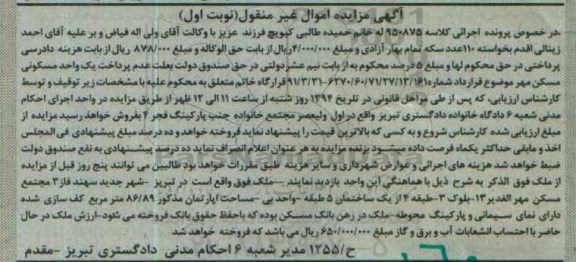 آگهی مزایده اموال غیر منقول(نوبت اول)
در خصوص پرونده اجرائی کلاسه ۹۵۰۸۷۵ له خانم حمیده طالبی کیویچ فرزند عزیز با وکالت آقای ولی اله فیاضی و بر علیه آقای احمد
زینالی اقدم بخواسته ۱۱۰عدد سکه تمام بهار آزادی و مبلغ ۴/۰۰۰/۰۰۰ریال از بابت حق الوکاله و مبلغ ۸۷۸/۰۰۰ ریال از بابت هزینه دادرسی
پرداختی در حق محکوم لها و مبلغ ۵درصد محکوم به از بابت نیم عشر دولتی در حق صندوق دولت بعلت عدم پرداخت یک واحد مسکونی
مسکن مهر موضوع قرارداد شماره۶۲۷۰/۶۰/۷۱/۲۷/۱۳/۱۶۱-۹۱/۳/۳۱ قرارگاه خاتم متعلق به محکوم علیه با مشخصات زیر توقیف و توسط
کارشناس ارزیابی، که پس از طی مراحل قانونی در تاریخ ۱۳۹۴ روز شنبه از ساعت ۱۱ الی ۱۲ ظهر از طریق مزایده در واحد اجرای احکام
مدنی شعبه ۶ دادگاه خانواده دادگستری تبریز واقع در اول ولیعصر مجتمع خانواده جنب پارکینگ فجر ۴ بفروش خواهد رسید مزایده از
مبلغ ارزیابی شده کارشناس شروع و به کسی که بالاترین قیمت را پیشنهاد نماید فروخته خواهد و ده درصد مبلغ پیشنهادی فی المجلس
اخذ و مابقی حداکثر یکماه فرصت داده میشود برنده مزایده به هر عنوان اعلام انصراف نماید ده درصد پیشنهادی به نفع صندوق دولت
ضبط خواهد شد هزینه های اجرائی و عوارض شهرداری و سایر هزینه طبق مقررات خواهد بود طالبین می توانند پنج روز قبل از مزایده
از ملک فوق الذکر به شرح ذیل با هماهنگی این واحد بازدید نمایند _ملک فوق واقع است در تبریز -شهر جدید سهند فاز۳ مجتمع
مسکن مهر الغدیر۱۳-بلوک ۳-طبقه ۴ از یک ساختمان ۵ طبقه -واحد بی -مساحت اپارتمان مذکور ۸۶/۸۹ متر مربع کف سازی شده
دارای نمای سیمانی و پارکینگ محوطه-ملک در رهن بانک مسکن بوده که باحفظ حقوق بانک فروخته می شود-ارزش ملک در حال
حاضر با احتساب انشعابات آب و برق و گاز مبلغ ۶۵۰/۰۰۰/۰۰۰ ریال می باشد که فروخته خواهد شد
ح/۱۲۵۵ مدیر شعبه ۶ احکام مدنی دادگستری تبریز -مقدم